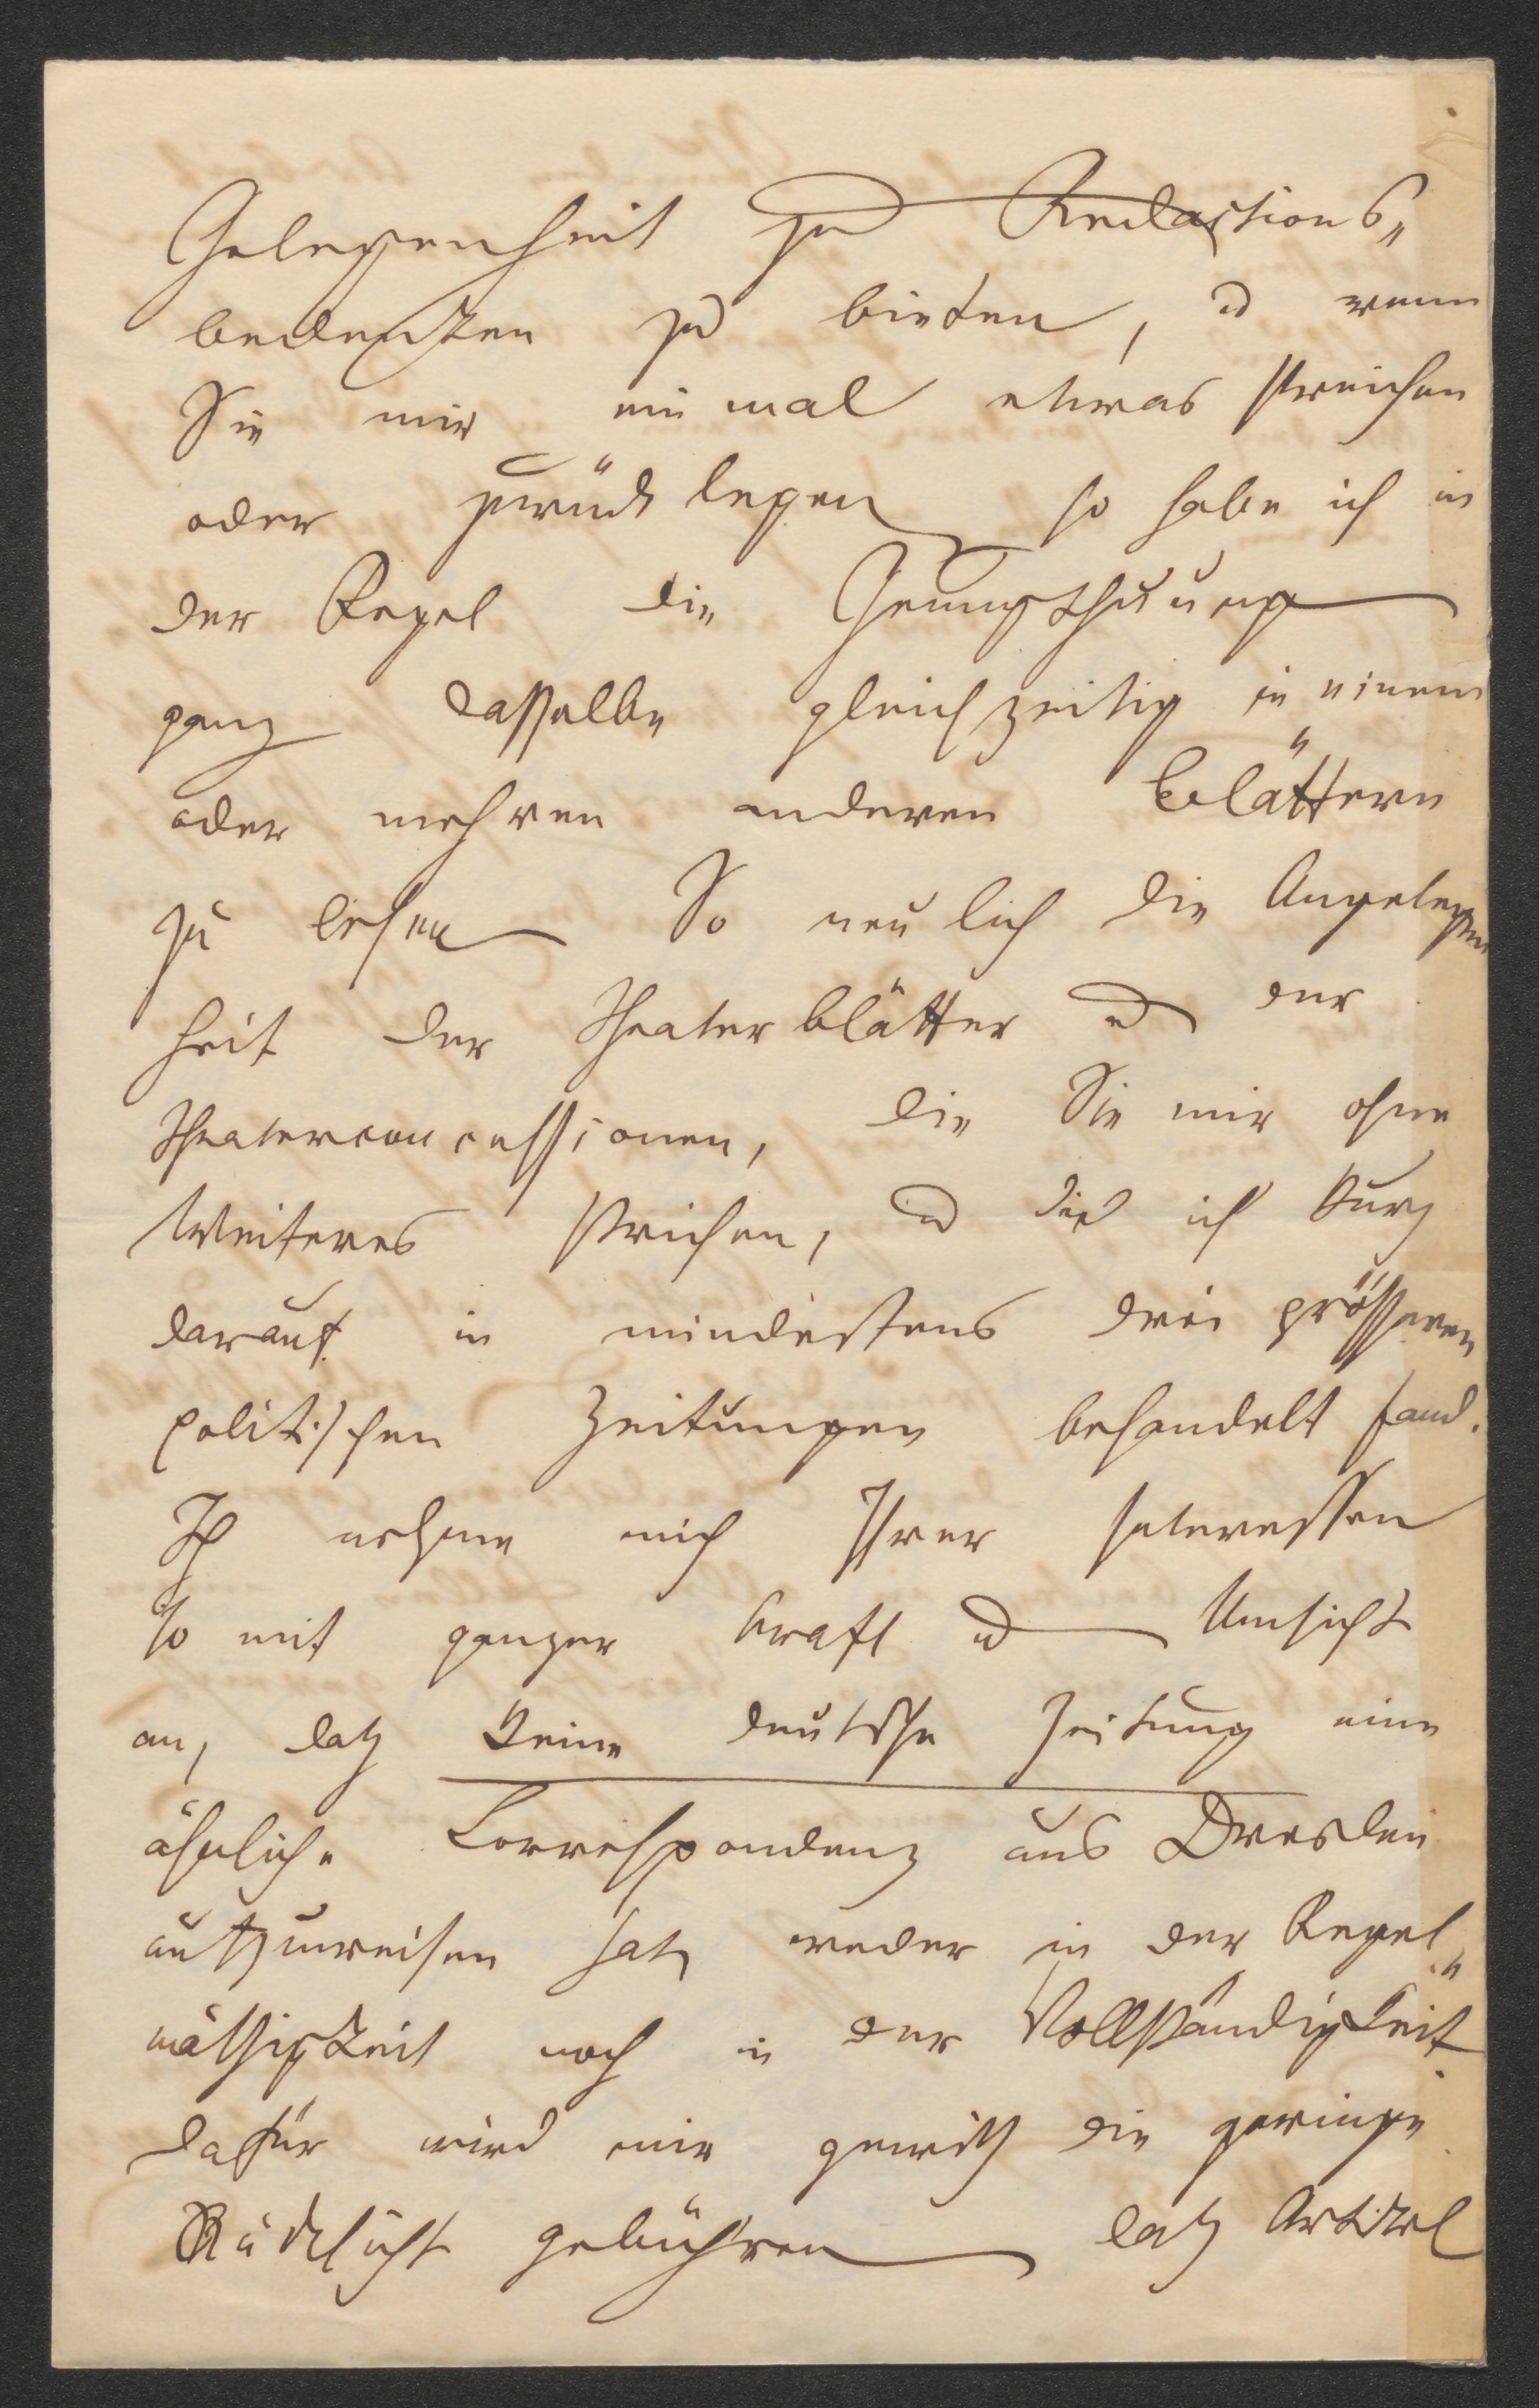 Gelegenheit zu Redactions„
bedenken zu bieten, u wenn
Sie mir einmal etwas streichen
oder zurück legen so habe ich in
der Regel die Genugthuung
ganz dasselbe gleichzeitig in einem
oder mehren anderen Blättern
zu lesen So neulich die Angelegen
heit der Theaterblätter u der
Theaterconcessionen, die Sie mir ohne
Weiteres strichen, u die ich kurz
darauf in mindestens drei grösseren
politischen Zeitungen behandelt fand.
Ich nehme mich Ihrer Interessen
so mit ganzer Kraft u Umsicht
an, daß keine deutsche Zeitung eine
ähnliche Correspondenz aus Dresden
aufzuweisen hat, weder in der Regel„
mäßigkeit noch in der Vollständigkeit.
dafür wird mir gewiß die geringe
Rücksicht gebühren daß Artikel